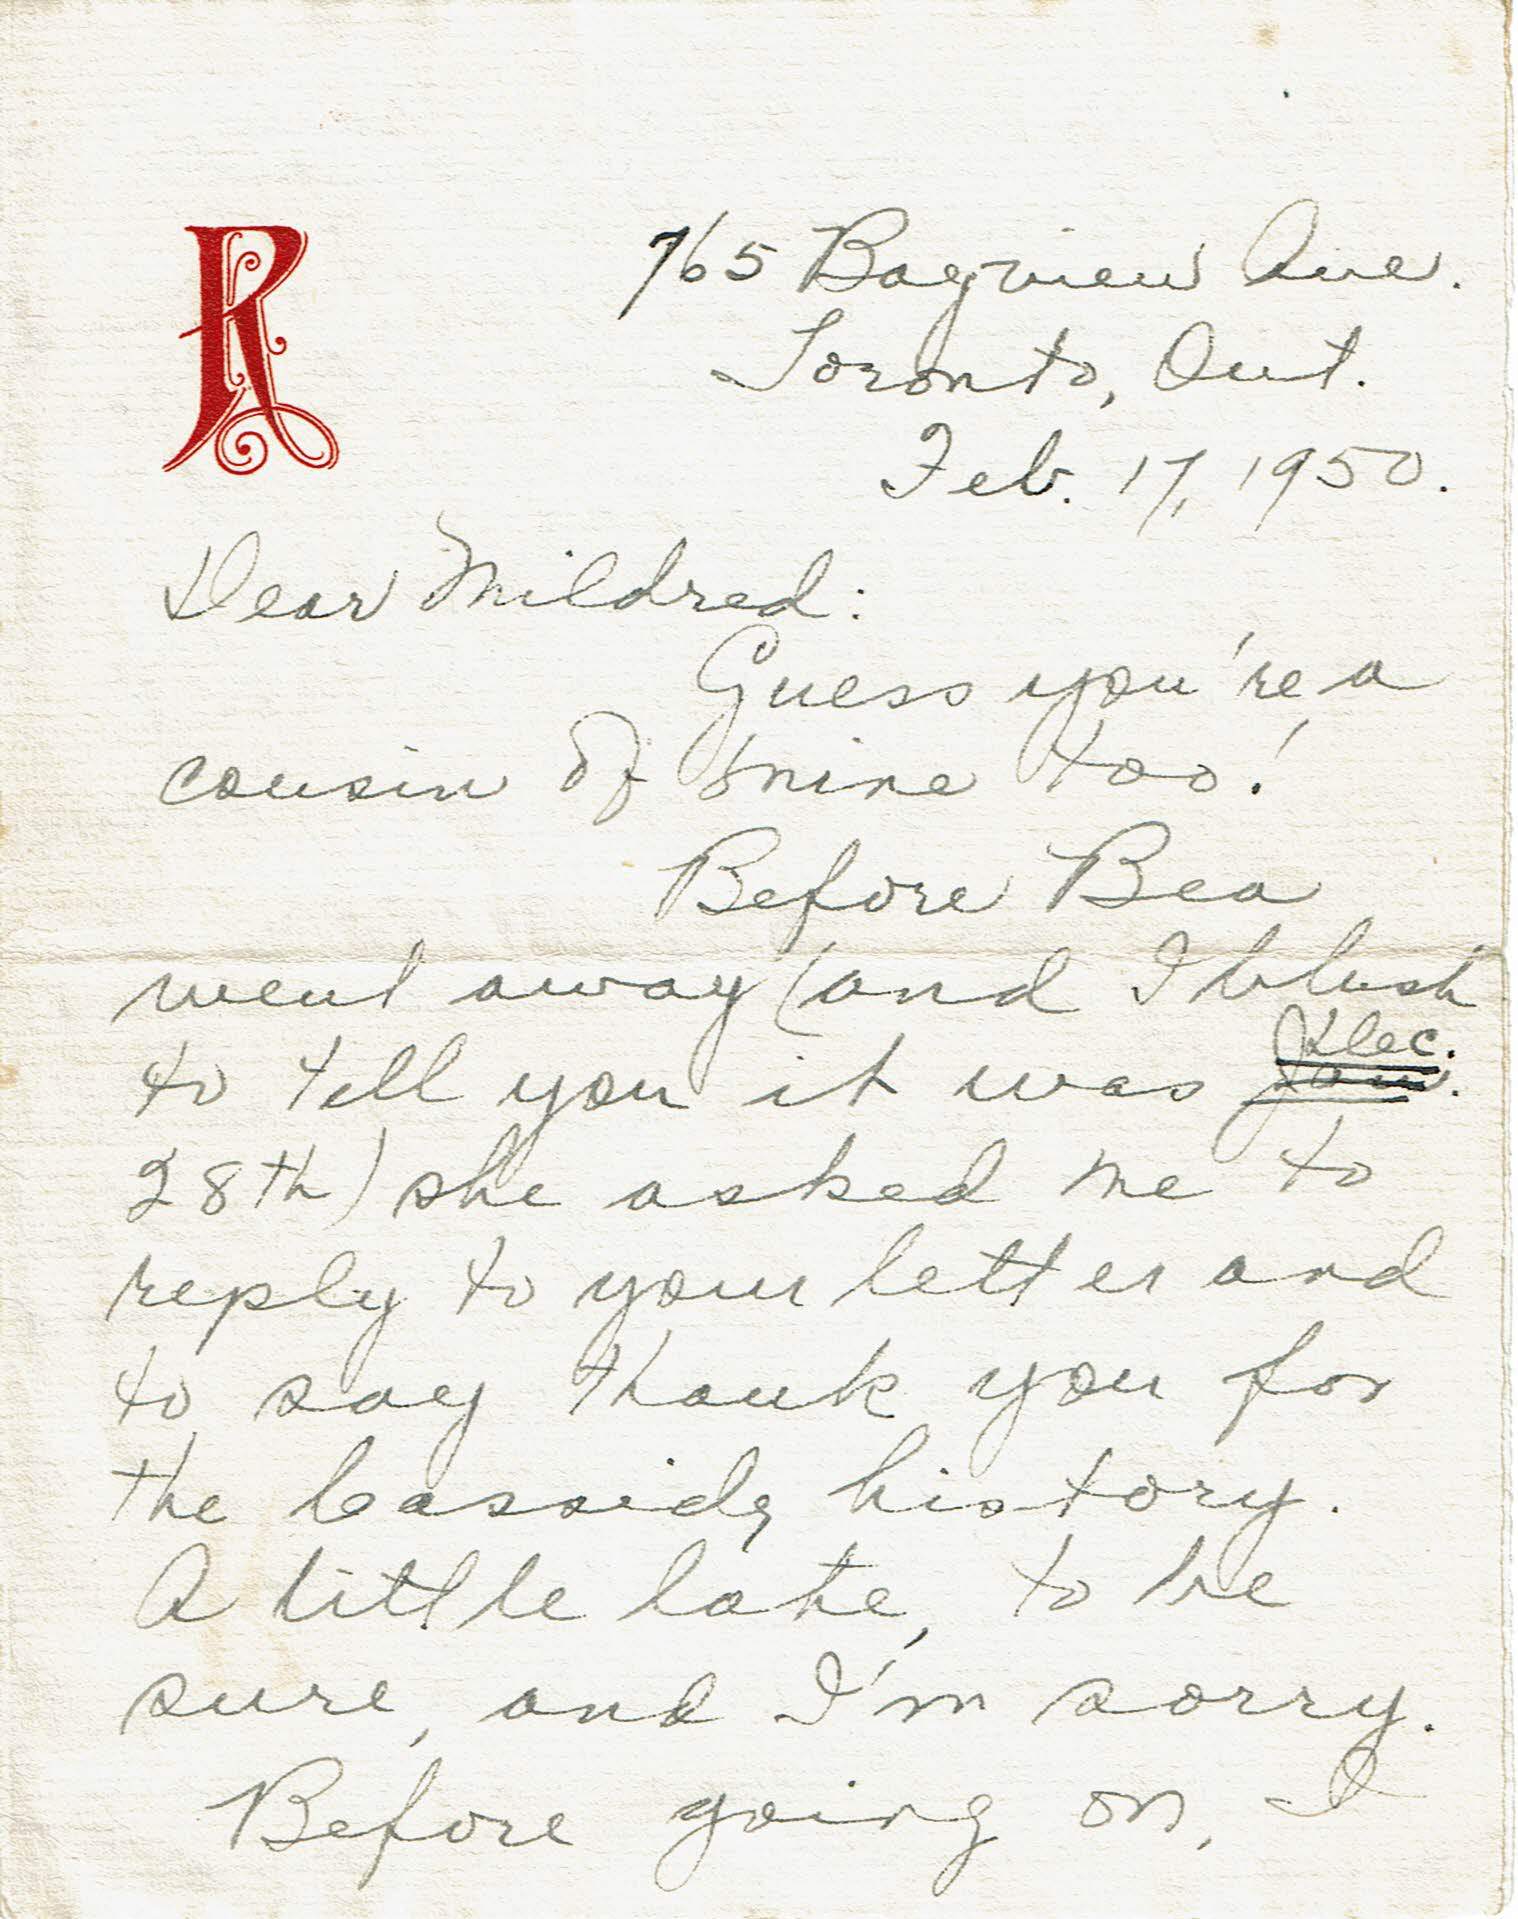 R
765 Bayview Ave.
Toronto, Ont.
Feb. 17, 1950.
Dear Mildred:
Guess you're a
cousin of mine too!
Before Bea
went away (and I blush
Dec.
to tell you it was Jan.
28th) she asked me to
reply to your letter and
to say thank you for
the Leaside history.
A little late, to be
sure, and I'm sorry.
Before going on, I